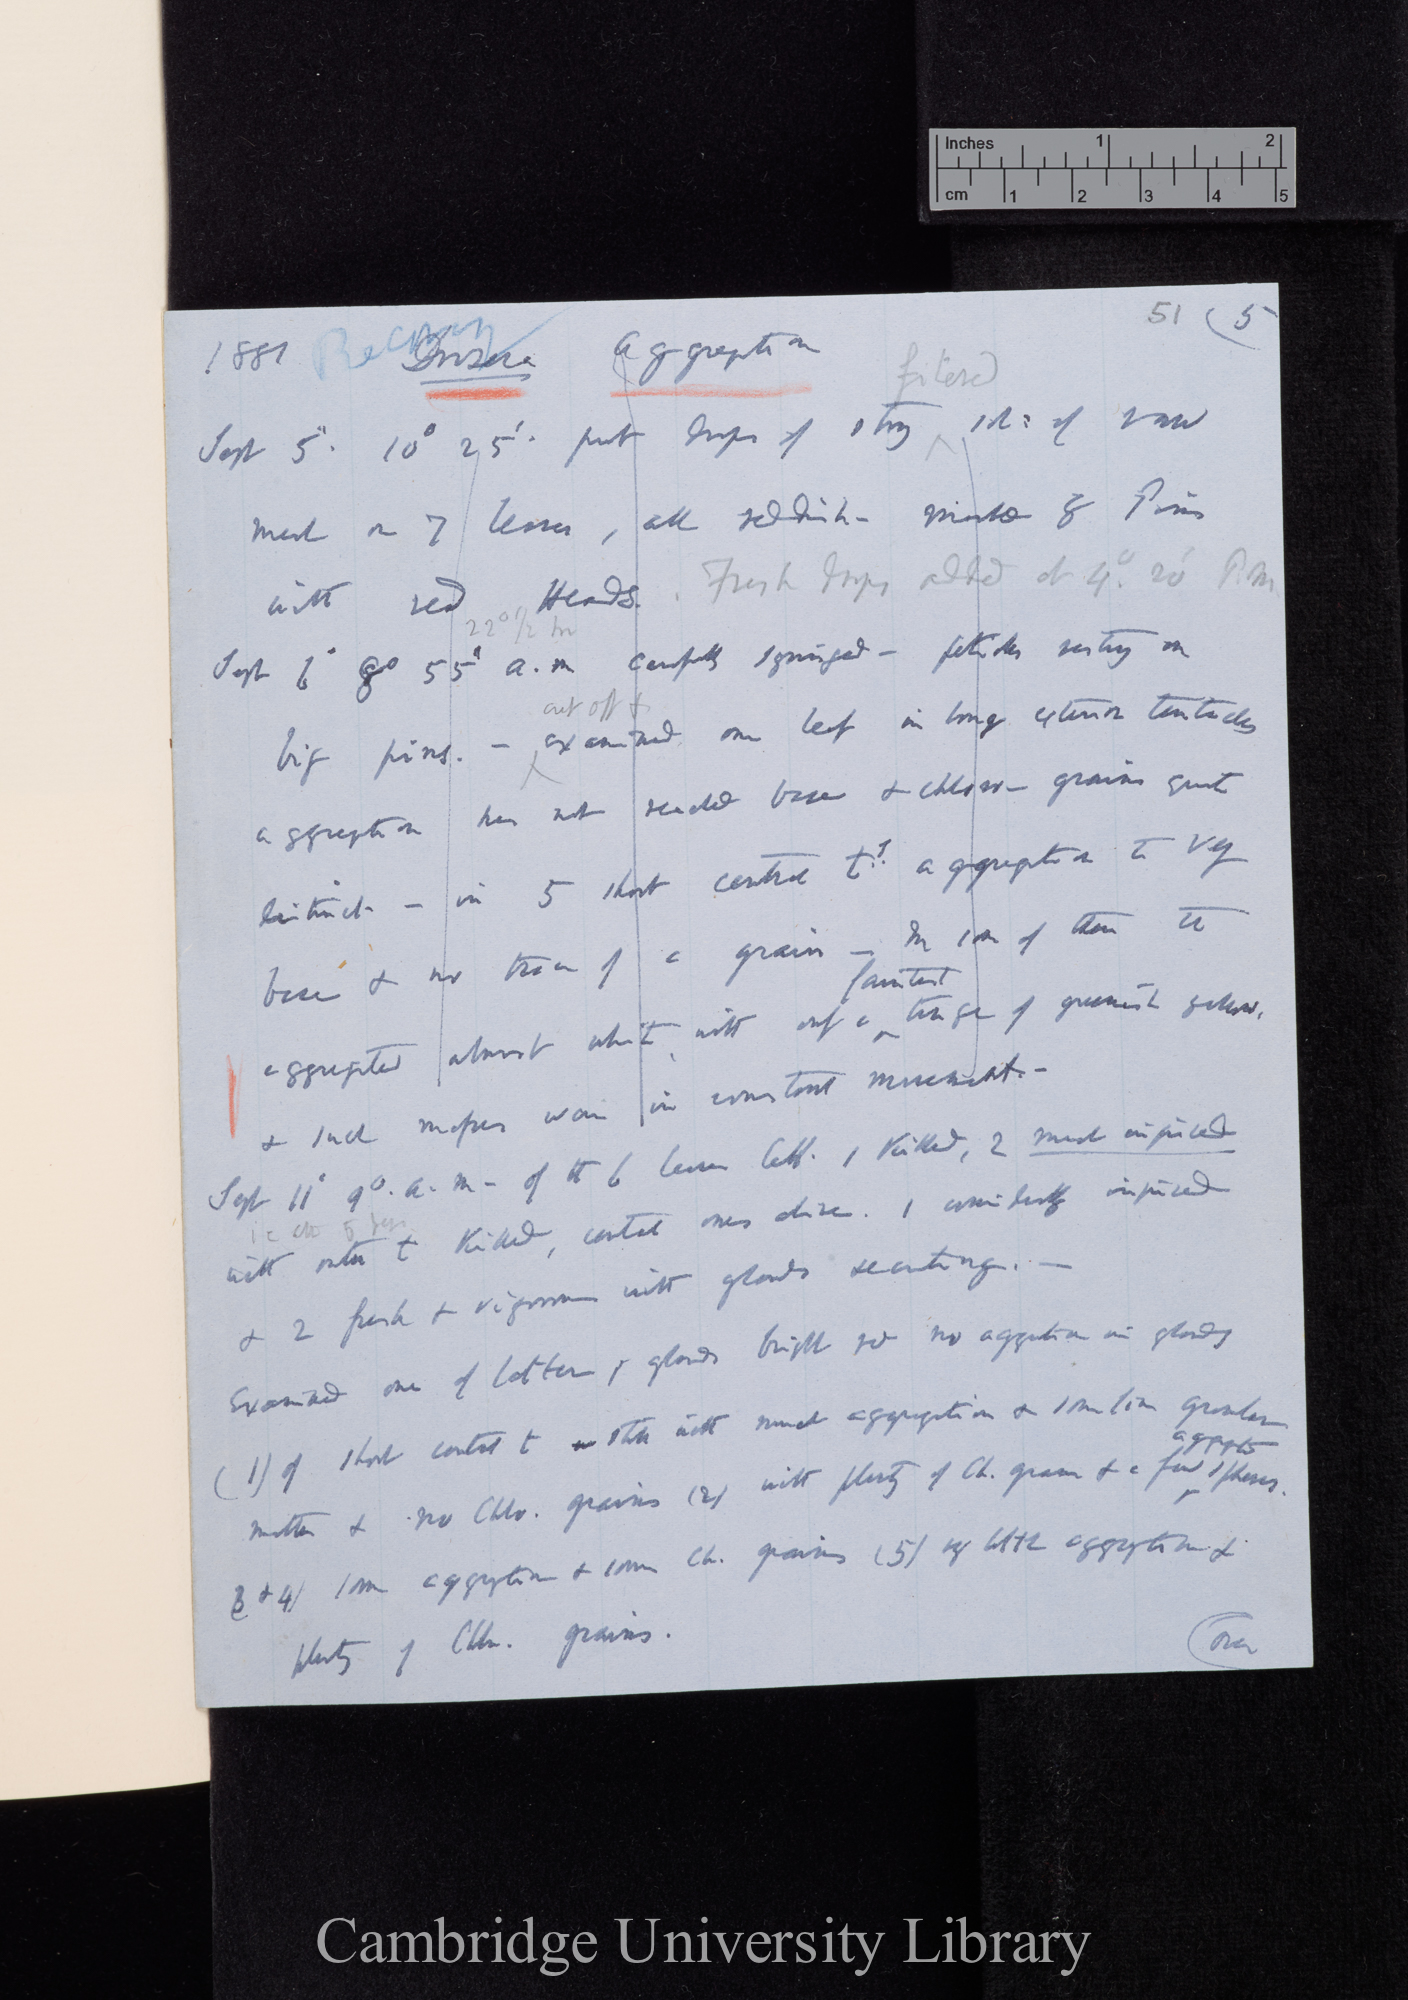 Inches 1 2
cm 1 2 3 4 5
51 (5
1881 Drosera Aggregation
filtered
Sept 5" 10° 25' put drops of strong soln: of raw
meat on 7 leaves, all reddish — marked by Pins
with red Heads. Fresh drops added at 4° 20' P.m
22° 1/2 hr
Sept 6" 8° 55' a.m carefully syringed — petioles resting on
cut off &
big pins. — examined one leaf in long exterior tentacles
aggregation has not reached base & chloro— grains quite
distinct — in 5 short central t.s aggregation to very
base & no trace of a grain — In some of them the
faintest
aggregated almost white, with only a tinge of greenish yellow,
& such masses were in constant movement. —
Sept 11" 9°. a.m — of the 6 leaves left. 1 Killed, 2 much injured
i.e. after 5 days
with outer t Killed, central ones alive. 1 considerably injured
& 2 fresh & vigorous with glands secreting. —
Examined one of latter, glands bright red no aggregation in glands
(1) of short central t with much aggregation & some fine granular
aggregated
matter & no Chlo. grains (2) with plenty of Ch. grains & a few spheres.
3 & 4) some aggregation & some Ch. grains (5) very little aggregation &
plenty of Chlo. grains.
(over
Cambridge University Library